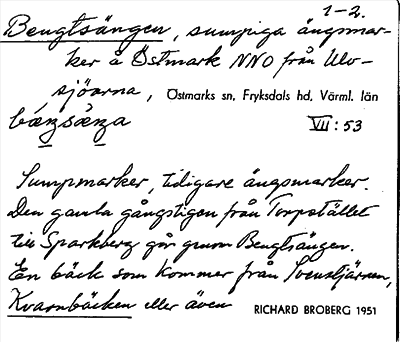 1-2.
Bengtsängen, sumpiga ängsmar-
ker å Östmark NNO från Ulv-
sjöarna, Östmarks sn, Fryksdals hd, Värml. län
VII:53
Sumpmarker, tidigare ängsmarker.
Den gamla gångstigen från Torpstället
till Sparkberg går genom Bengtsängen.
En bäck som kommer från Svenstjärnen,
Kvarnbäcken eller även RICHARD BROBERG 1951